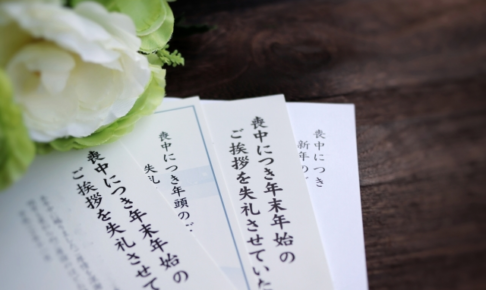 喪中につき
新年の
喪中につき年末年始の
ご挨拶を失礼させていた
喪中につき年頭のご
失礼
喪中につき年末年始の
ご挨拶を失礼させて